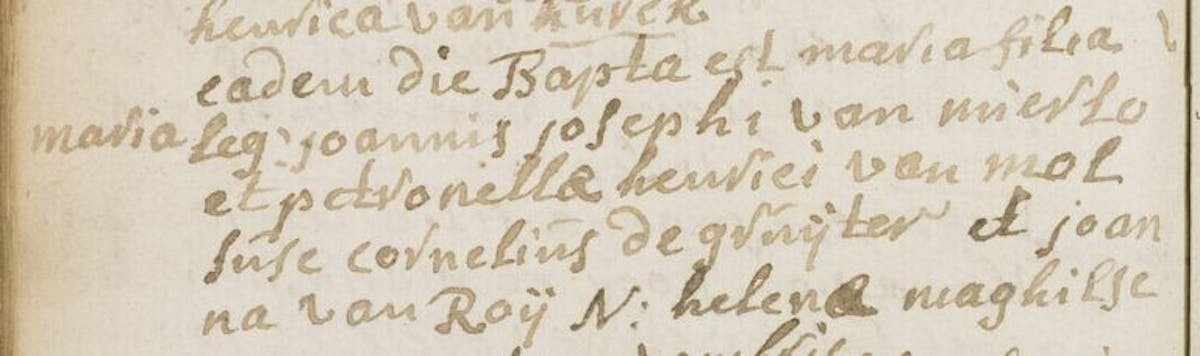 henrica van
eadem die Bapta est maria filia
maria leg: joannis josephi van mierlo
et petronellæ henrici van mol
suse cornelius de gruijter et joan
na van Roij N: helenæ maghilse